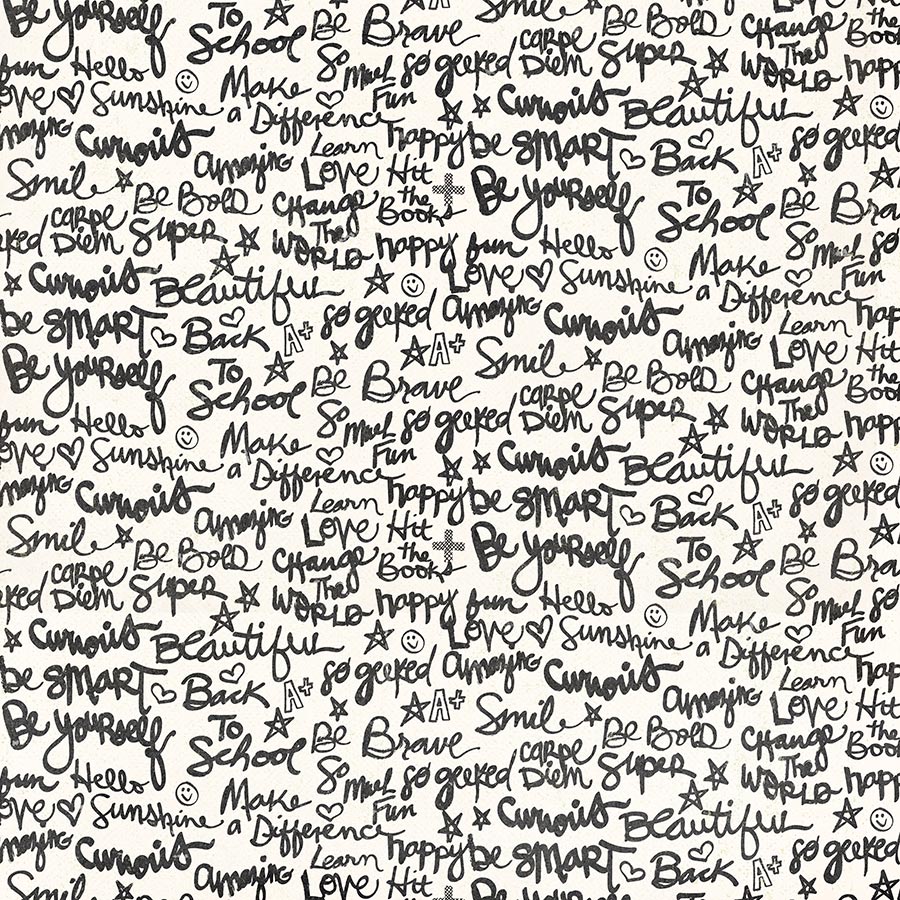 Be Yourself To School Be Brave Smile Be Bold Change The World the Books
fun Hello So Much Fun so geeked Carpe Diem Super happy
Love Sunshine Make a Difference happy Curious Beautiful
Amazing Curious Learn be smart Back A+ so geeked
Smile Amazing Love Hit the Books Be Yourself To School Be Brave
Be Bold Change The World
geeked Carpe Diem Super happy fun Hello So Much Fun so
Curious Beautiful Love Sunshine Make a Difference
be smart Back A+ so geeked Amazing Curious Learn happy
Be Yourself To School Be Brave A+ Smile Amazing Love Hit the Books
Be Bold Change The World
fun Hello So Much Fun so geeked Carpe Diem Super happy
Love Sunshine Make a Difference happy Curious Beautiful
Amazing Curious Learn be smart Back A+ so geeked
Smile Amazing Love Hit the Books Be Yourself To School Be Brave
Be Bold Change The World
geeked Carpe Diem Super happy fun Hello So Much Fun so
Curious Beautiful Love Sunshine Make a Difference
be smart Back A+ so geeked Amazing Curious Learn happy
Be Yourself To School Be Brave A+ Smile Amazing Love Hit the Books
Be Bold Change The World
fun Hello So Much Fun so geeked Carpe Diem Super happy
Love Sunshine Make a Difference happy Curious Beautiful
Amazing Curious Learn be smart Back A+ so geeked
Smile Amazing Love Hit Be Yourself To School Be